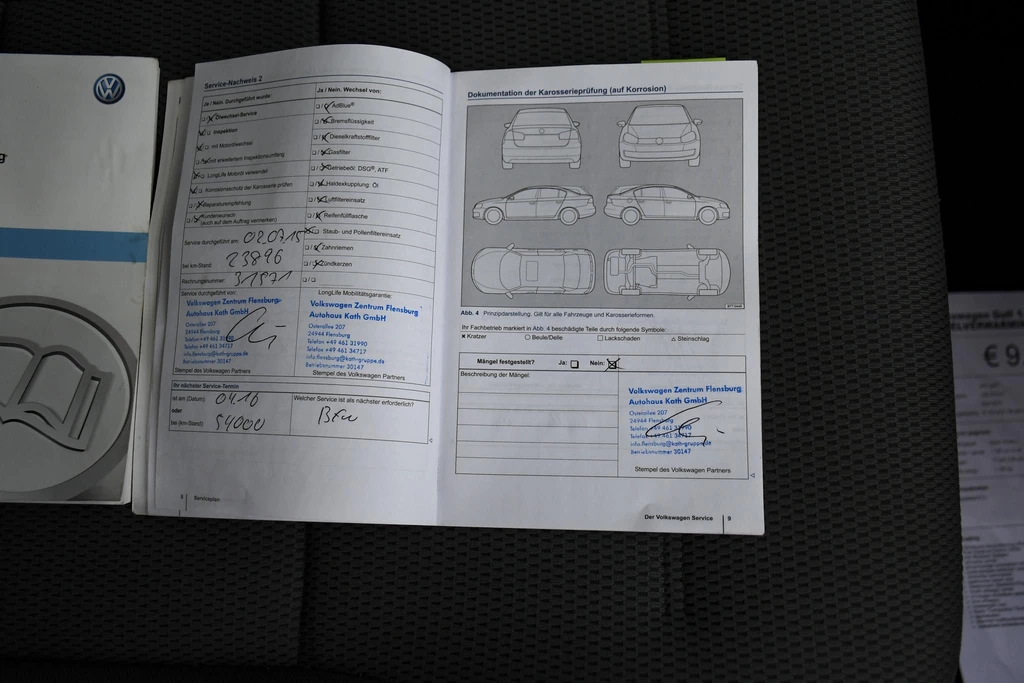 Service-Nachweis 2
Ja / Nein. Durchgeführt wurde:
Ölwechsel-Service
Inspektion
mit Motorölwechsel
mit erweitertem Inspektionsumfang
LongLife Motoröl verwendet
Korrosionsschutz der Karosserie prüfen
Reparaturempfehlung
Kundenwunsch
(auch auf dem Auftrag vermerken)
Service durchgeführt am: 02.07.15
bei km-Stand: 23896
Rechnungsnummer: 31971
Ja / Nein. Wechsel von:
AdBlue®
Bremsflüssigkeit
Dieselkraftstofffilter
Gasfilter
Getriebeöl: DSG®, ATF
Haldexkupplung: Öl
Luftfiltereinsatz
Reifenfüllflasche
Staub- und Pollenfiltereinsatz
Zahnriemen
Zündkerzen
Service durchgeführt von:
Volkswagen Zentrum Flensburg
Autohaus Kath GmbH
Osterallee 207
24944 Flensburg
Telefon +49 461 31990
Telefax +49 461 34717
info.flensburg@kath-gruppe.de
Betriebsnummer 30147
Stempel des Volkswagen Partners
LongLife Mobilitätsgarantie:
Volkswagen Zentrum Flensburg
Autohaus Kath GmbH
Osterallee 207
24944 Flensburg
Telefon +49 461 31990
Telefax +49 461 34717
info.flensburg@kath-gruppe.de
Betriebsnummer 30147
Stempel des Volkswagen Partners
Ihr nächster Service-Termin
ist am (Datum): 04.16
oder
bei (km-Stand): 54000
Welcher Service ist als nächster erforderlich?
8 Serviceplan
Dokumentation der Karosserieprüfung (auf Korrosion)
Abb. 4 Prinzipdarstellung. Gilt für alle Fahrzeuge und Karosserieformen.
Ihr Fachbetrieb markiert in Abb. 4 beschädigte Teile durch folgende Symbole:
x Kratzer ○ Beule/Delle □ Lackschaden △ Steinschlag
Mängel festgestellt? Ja: Nein:
Beschreibung der Mängel:
Volkswagen Zentrum Flensburg
Autohaus Kath GmbH
Osterallee 207
24944 Flensburg
Telefon +49 461 31990
Telefax +49 461 34717
info.flensburg@kath-gruppe.de
Betriebsnummer 30147
Stempel des Volkswagen Partners
Der Volkswagen Service 9
€ 9